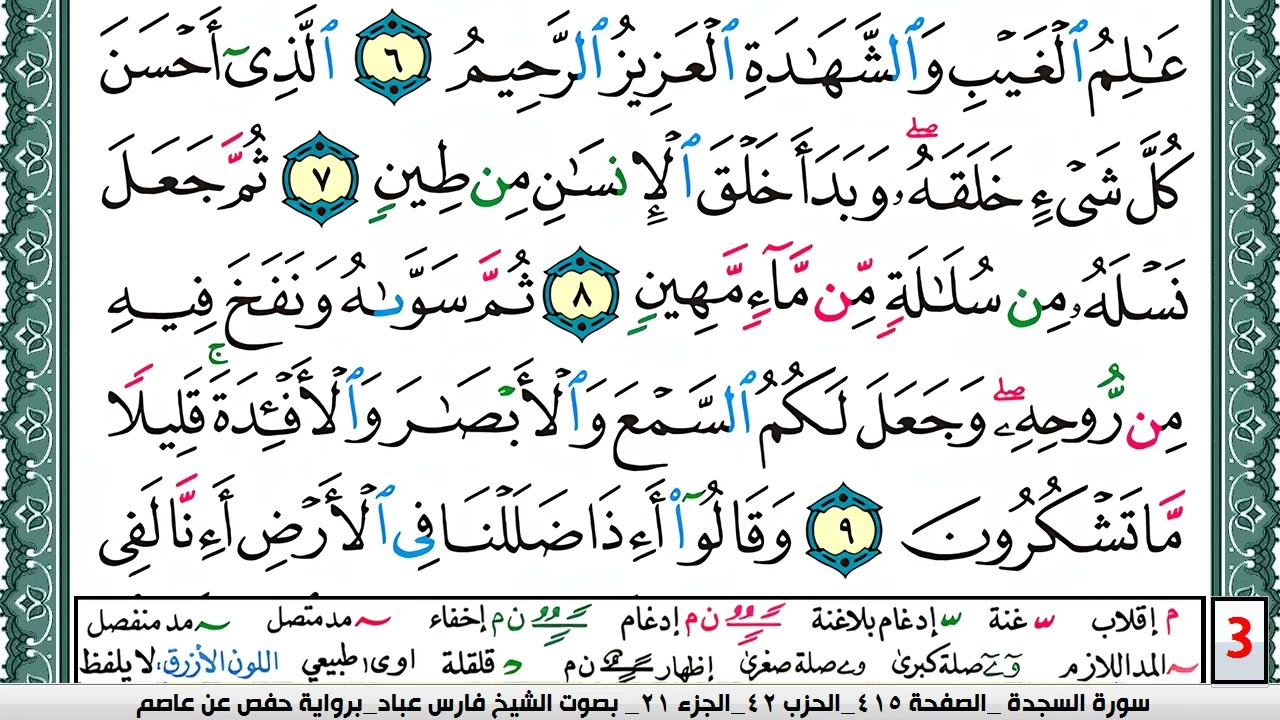 عَـٰلِمُ ٱلْغَيْبِ وَٱلشَّهَـٰدَةِ ٱلْعَزِيزُ ٱلرَّحِيمُ ٦ ٱلَّذِىٓ أَحْسَنَ
كُلَّ شَىْءٍ خَلَقَهُۥ ۖ وَبَدَأَ خَلْقَ ٱلْإِنسَـٰنِ مِن طِينٍ ٧ ثُمَّ جَعَلَ
نَسْلَهُۥ مِن سُلَـٰلَةٍ مِّن مَّآءٍ مَّهِينٍ ٨ ثُمَّ سَوَّىٰهُ وَنَفَخَ فِيهِ
مِن رُّوحِهِۦ ۖ وَجَعَلَ لَكُمُ ٱلسَّمْعَ وَٱلْأَبْصَـٰرَ وَٱلْأَفْـِٔدَةَ ۚ قَلِيلًا
مَّا تَشْكُرُونَ ٩ وَقَالُوٓا۟ أَءِذَا ضَلَلْنَا فِى ٱلْأَرْضِ أَءِنَّا لَفِى
م إقلاب غنة إدغام بلاغنة ن م إدغام ن م إخفاء مد متصل مد منفصل
المد اللازم صلة كبرى صلة صغرى إظهار ن م قلقلة اوى طبيعي اللون الأزرق: لا يلفظ
3
سورة السجدة _الصفحة ٤١٥_الحزب ٤٢_الجزء ٢١_ بصوت الشيخ فارس عباد_برواية حفص عن عاصم